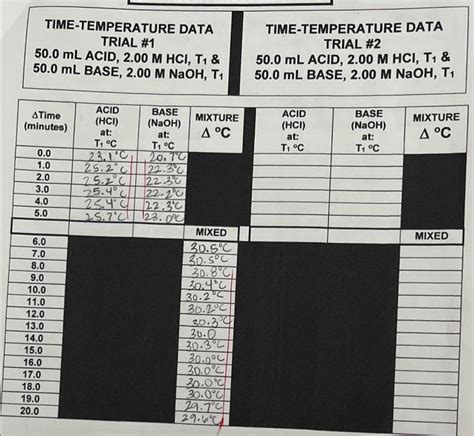 TIME-TEMPERATURE DATA
TRIAL #1
50.0 mL ACID, 2.00 M HCl, T₁ &
50.0 mL BASE, 2.00 M NaOH, T₁
TIME-TEMPERATURE DATA
TRIAL #2
50.0 mL ACID, 2.00 M HCl, T₁ &
50.0 mL BASE, 2.00 M NaOH, T₁
ΔTime (minutes) ACID (HCl) at: T₁ °C BASE (NaOH) at: T₁ °C MIXTURE Δ °C ACID (HCl) at: T₁ °C BASE (NaOH) at: T₁ °C MIXTURE Δ °C
0.0 23.1°C 20.7°C
1.0 25.2°C 22.3°C
2.0 25.2°C 22.3°C
3.0 25.4°C 22.2°C
4.0 25.4°C 22.3°C
5.0 25.7°C 23.0°C
MIXED MIXED
6.0 30.5°C
7.0 30.5°C
8.0 30.8°C
9.0 30.4°C
10.0 30.2°C
11.0 30.2°C
12.0 30.3°C
13.0 30.0
14.0 30.3°C
15.0 30.0°C
16.0 30.0°C
17.0 30.0°C
18.0 30.0°C
19.0 29.7°C
20.0 29.6°C